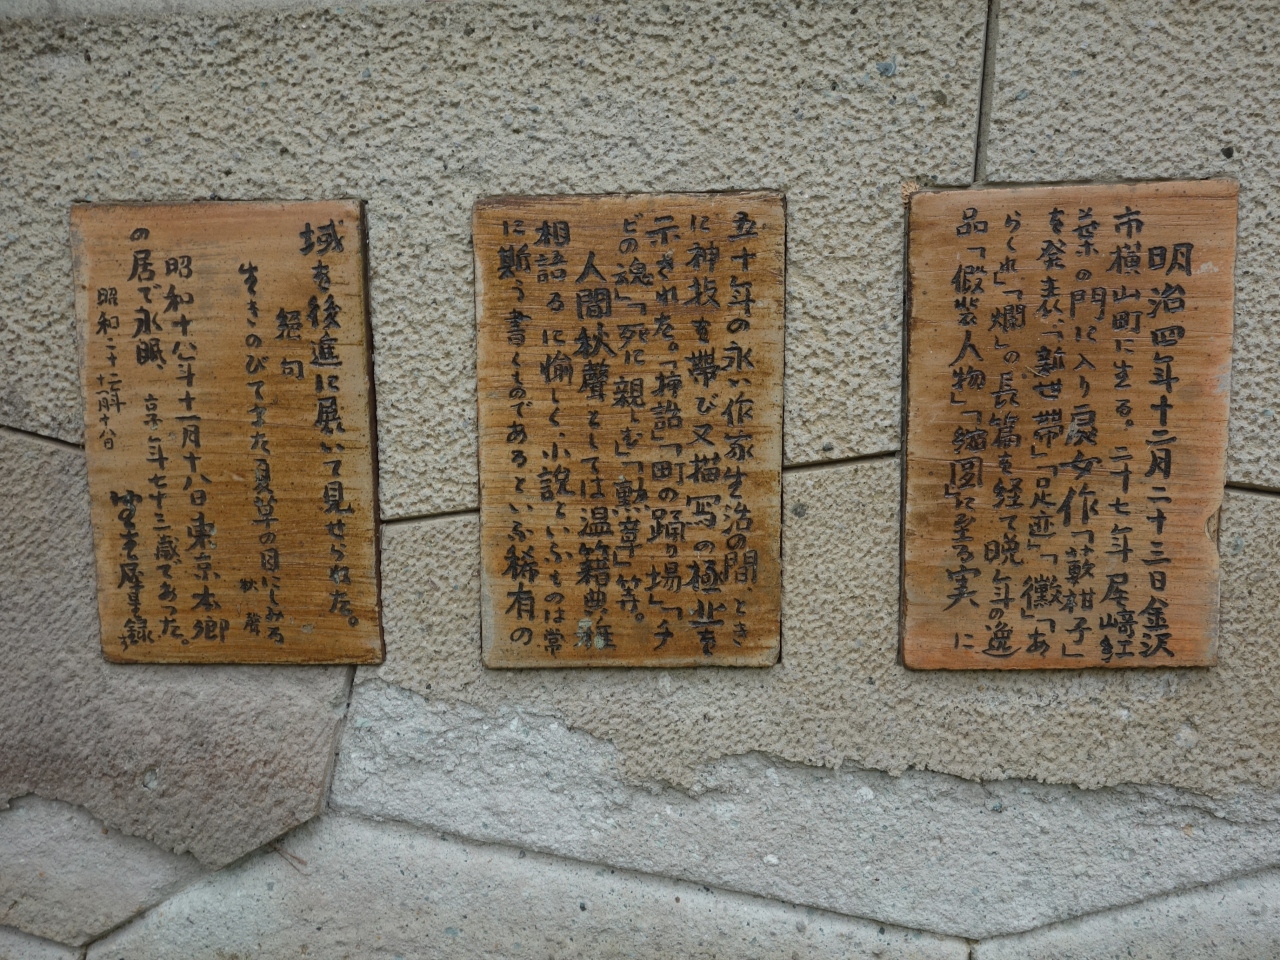 明治四年十二月二十三日金沢
市横山町に生る。二十七年尾﨑紅
葉の門に入り處女作「薮柑子」
を発表、「新世帯」「足迹」「黴」「あ
らくれ」「爛」の長篇を経て晩年の逸
品「假装人物」「縮図」に至る実に
五十年の永い作家生活の間、とき
に神技を帯び又描写の極北を
示された。「挿話」「町の踊り場」「チ
ビの魂」「死に親しむ」「勲章」等。
人間秋聲としては温籍典雅
相語るに愉しく小説といふものは常
に斯う書くものであるといふ稀有の
域を後進に展いて見せられた。
絶句
生きのびてまた夏草の目にしみる
秋聲
昭和十八年十一月十八日東京本郷
の居で永眠、享年七十三歳であつた。
昭和二十二年十一月十八日
室生犀星録